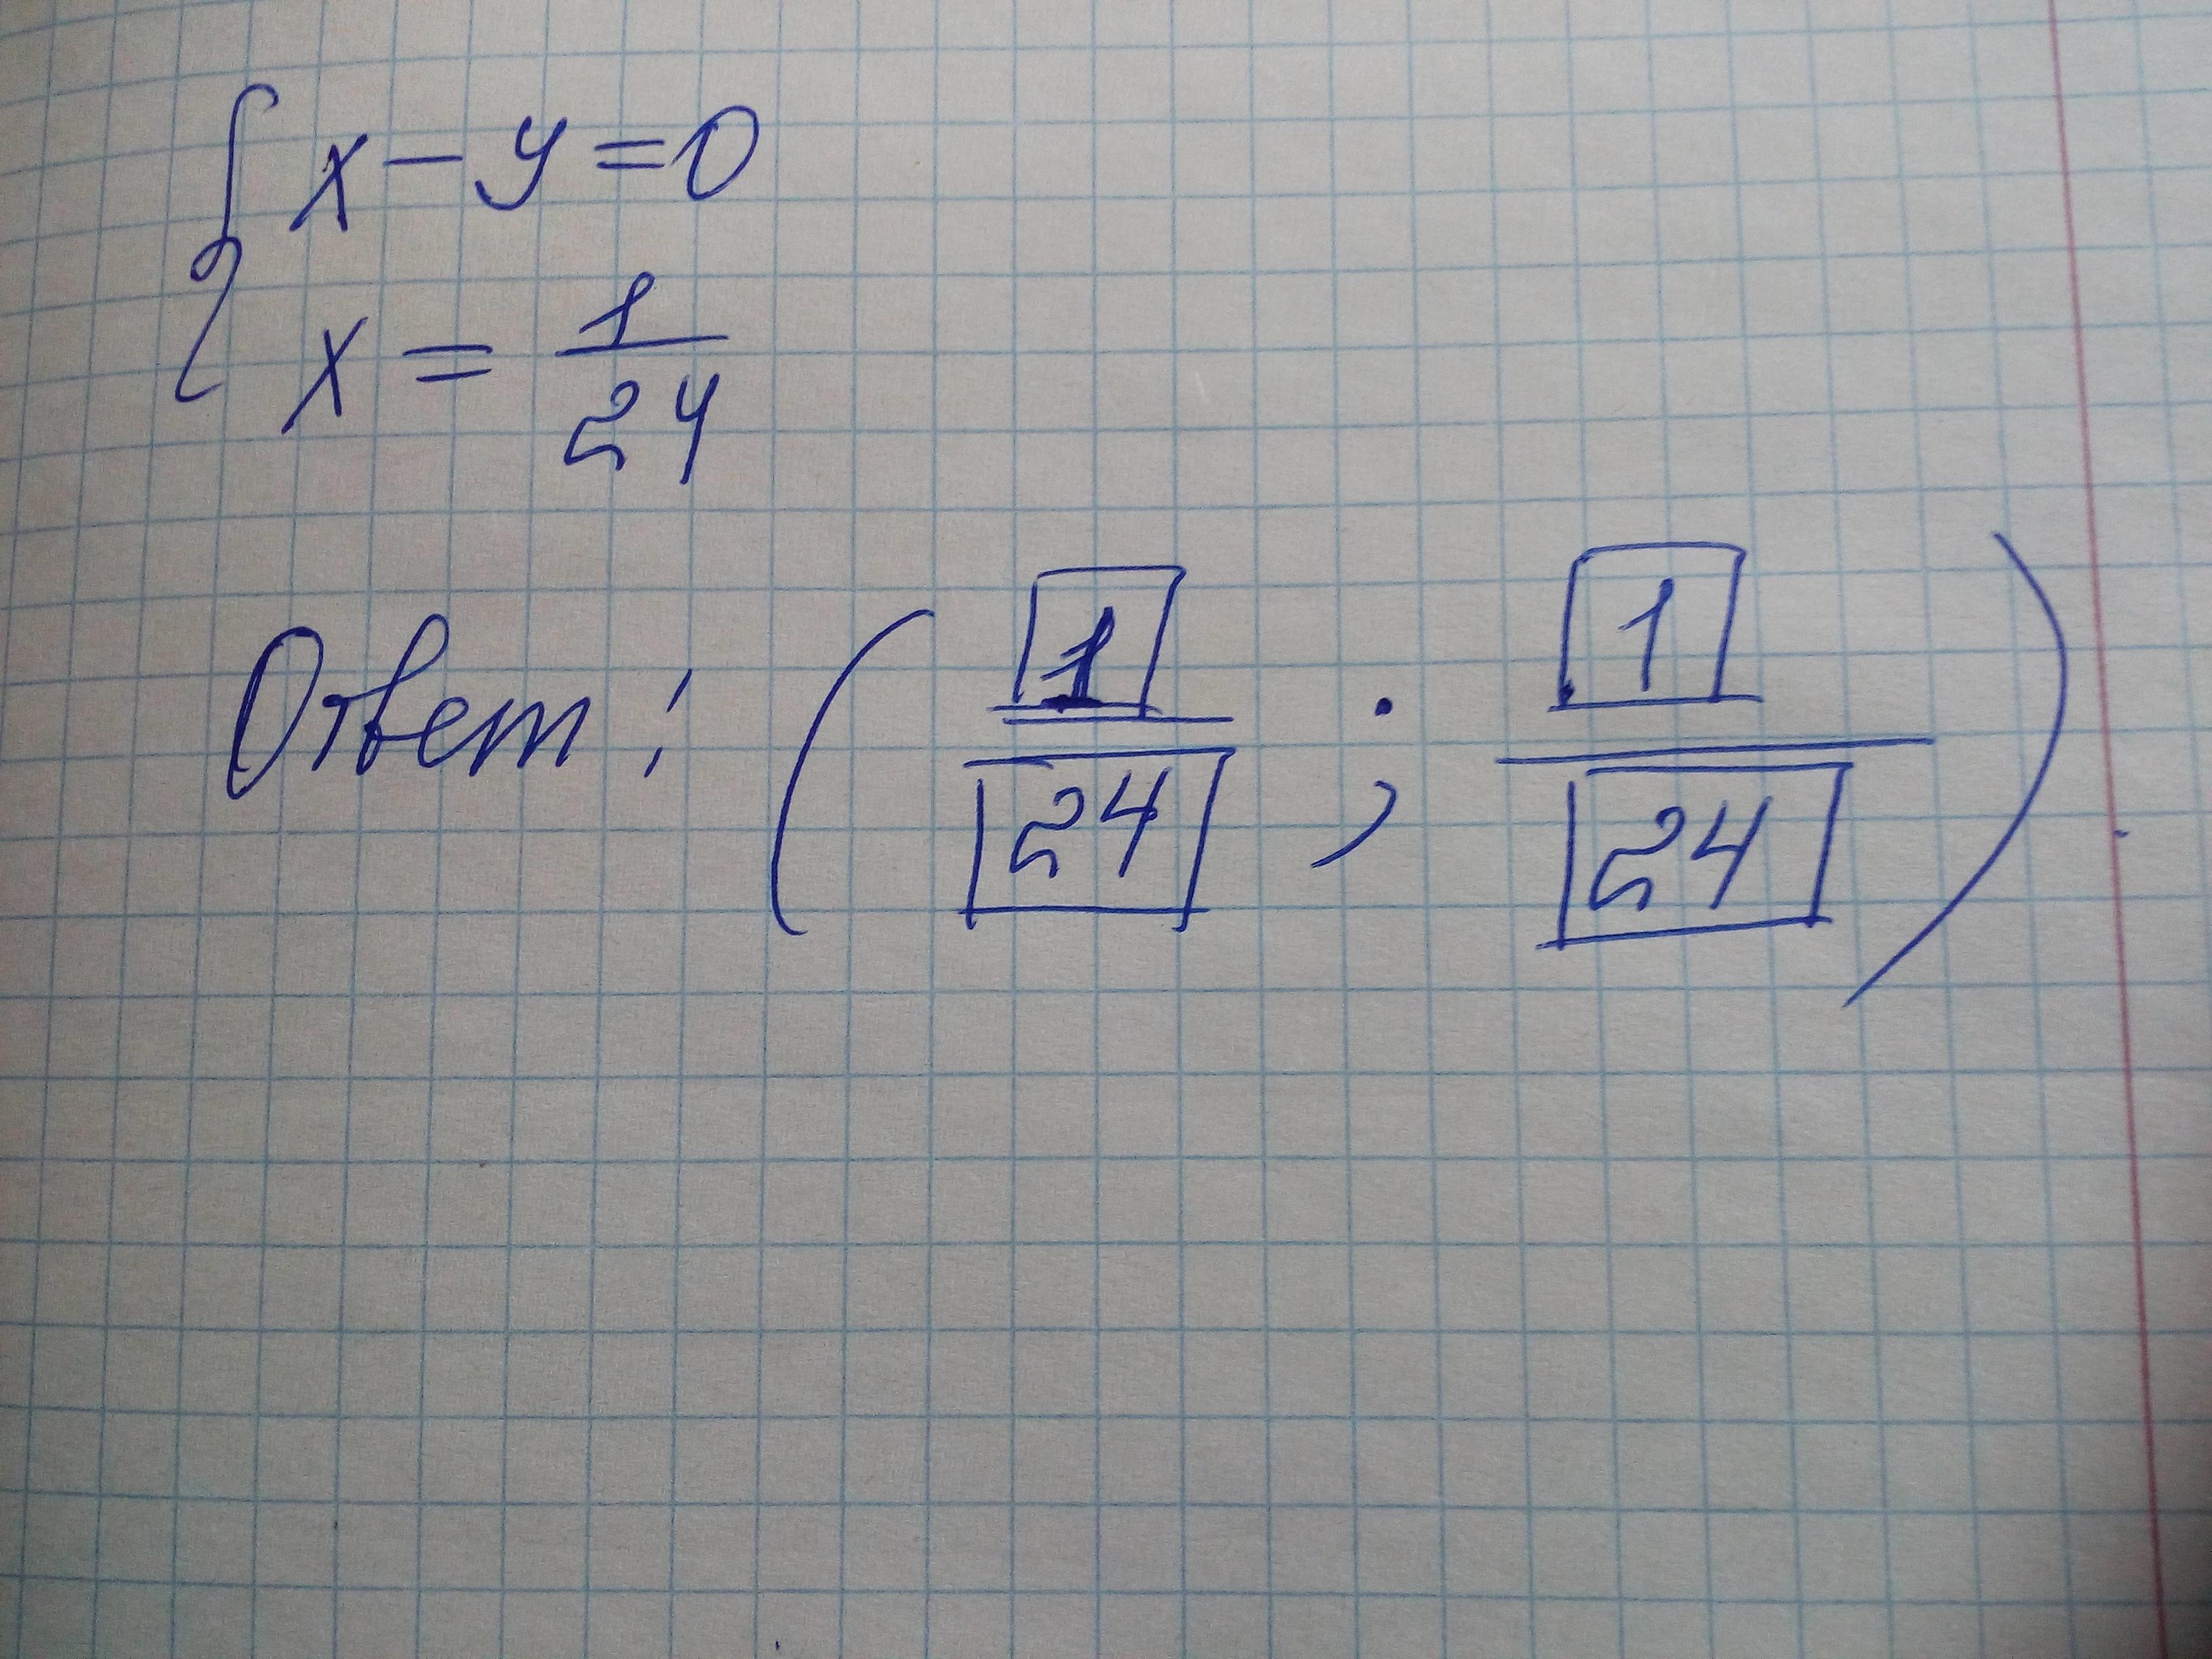 { x - y = 0
x = 1/24
Ответ: (1/24 ; 1/24).